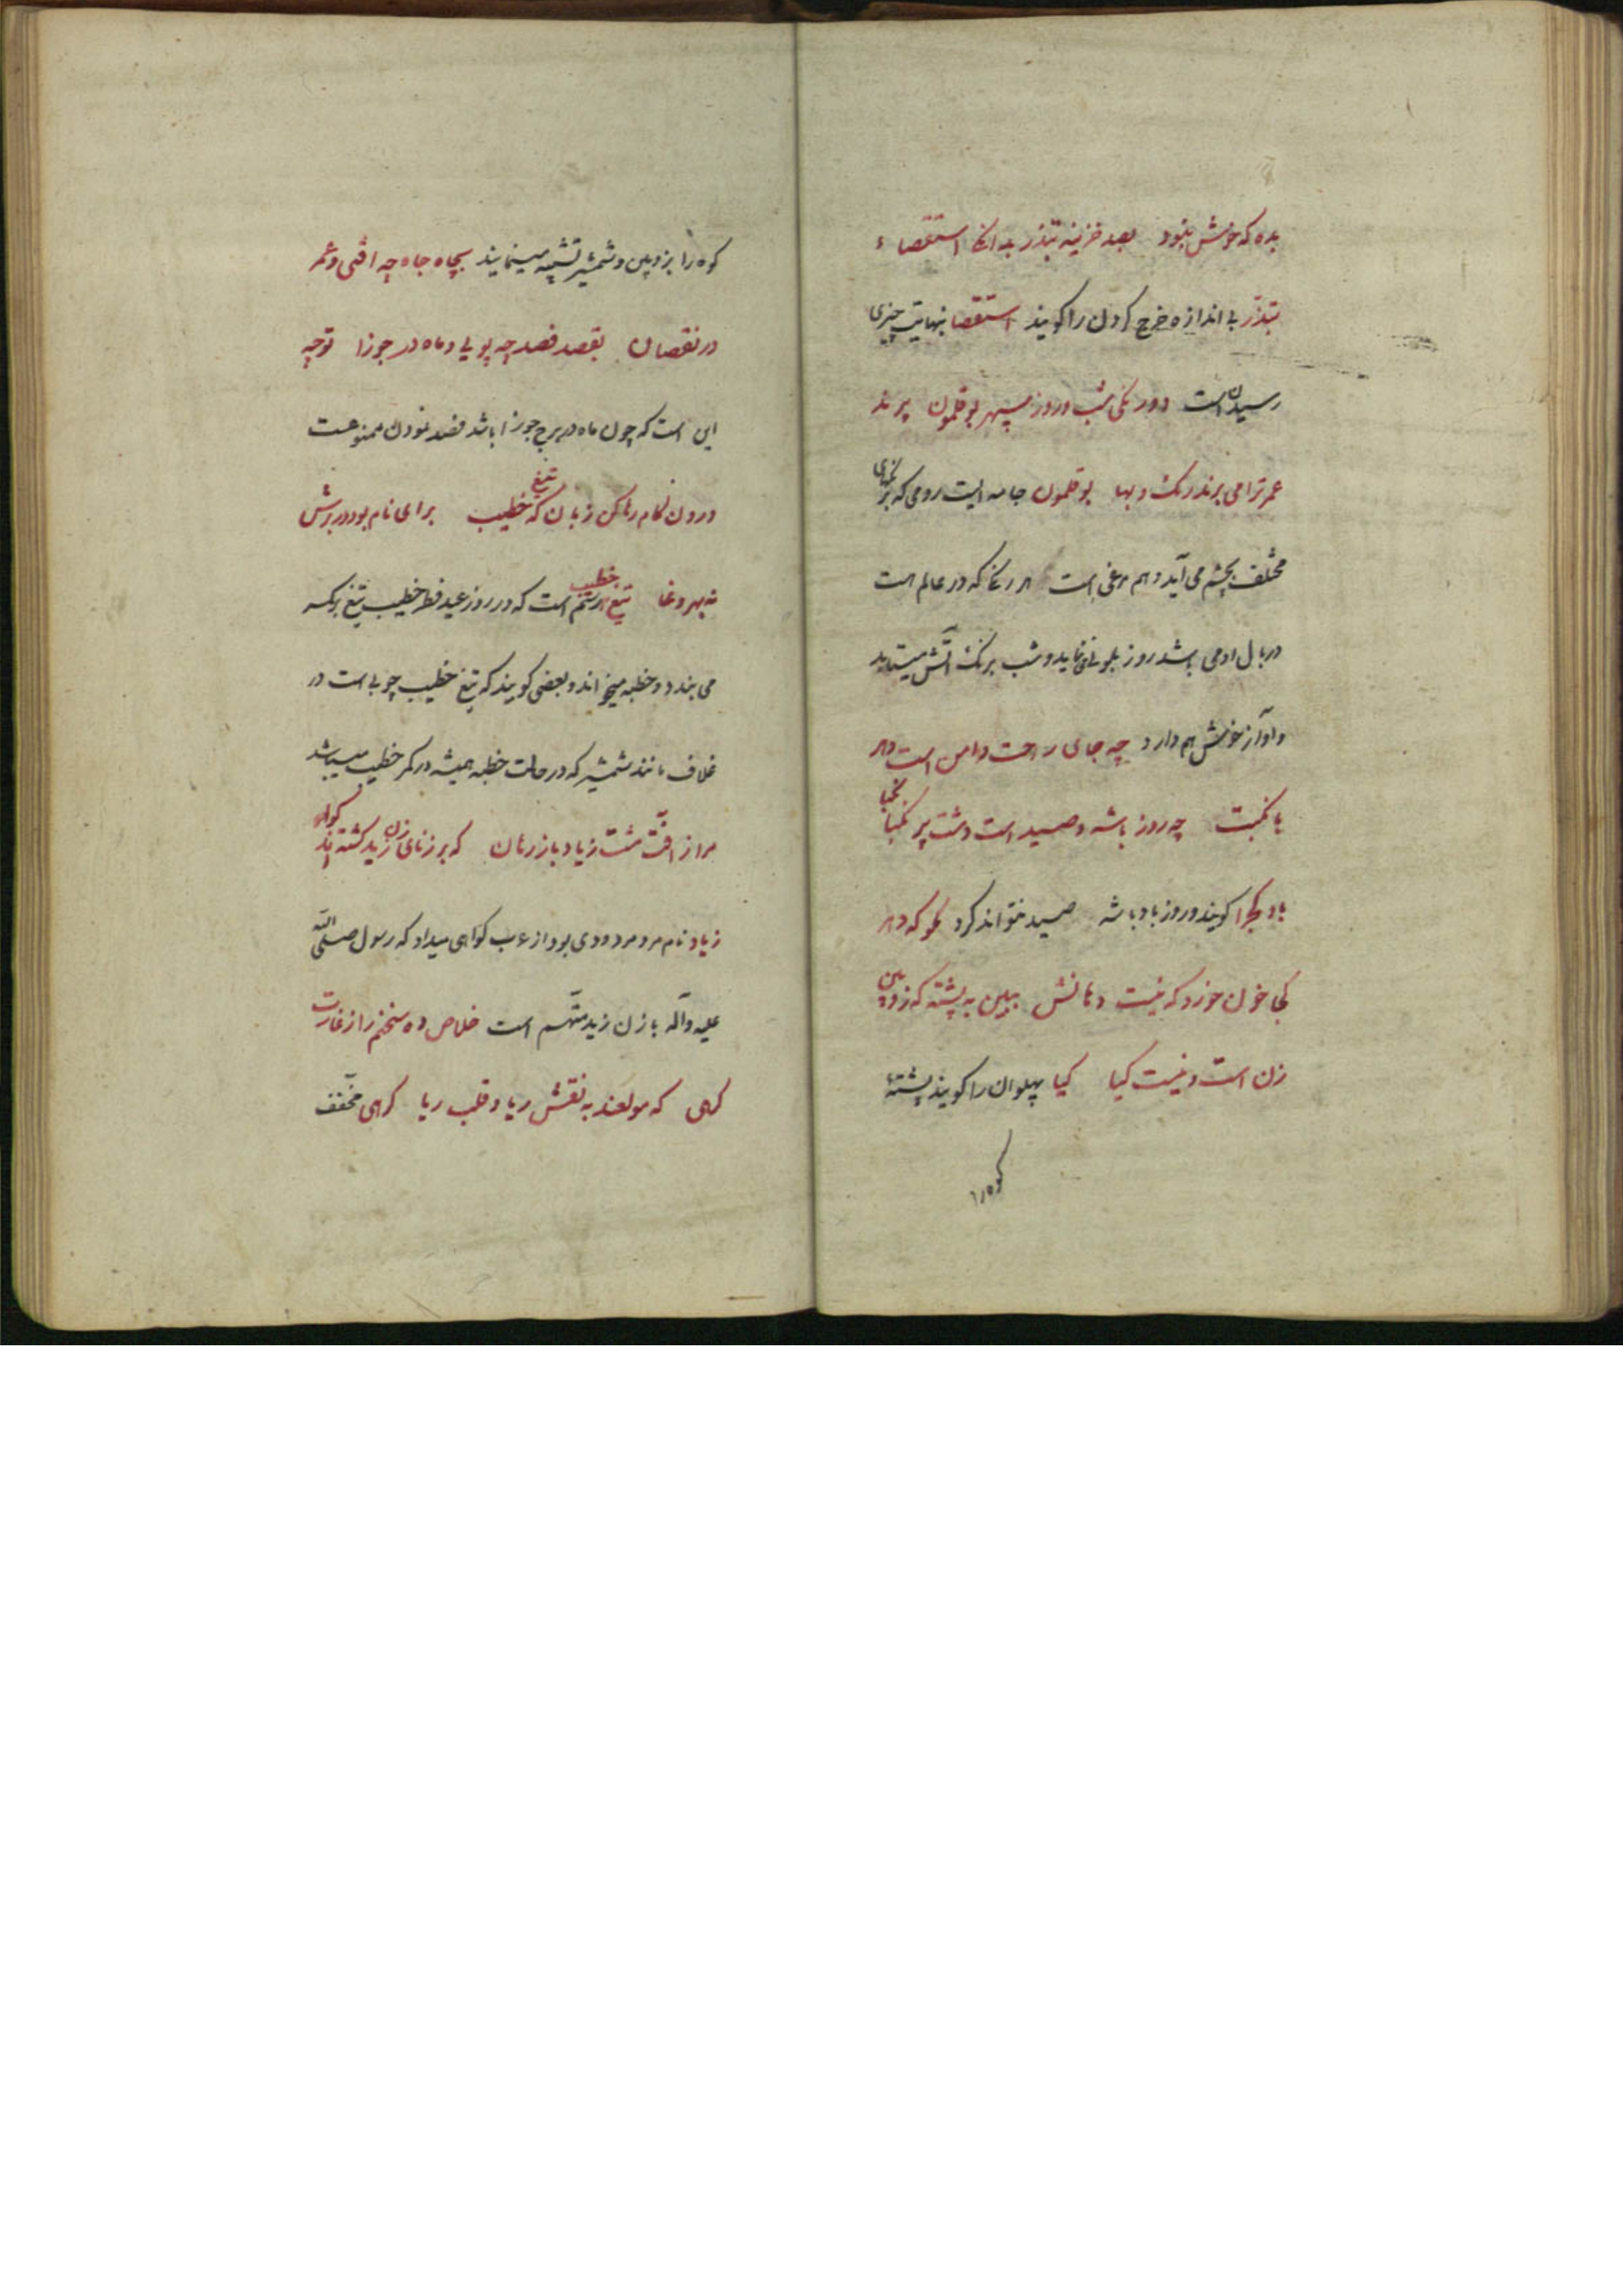 بده که خوش نبود بعد خزینه تبذر بدانکا استقصاء
تبذّر بی اندازه خرج کردن را کویند استقصا نهایت چیزی
رسیدن است دورنکی شب و روز سپهر بوقلمون پرند
عمر ترا می برند رنک و بها بوقلمون جامه ایست رومی که برنکهای
مختلف بچشم می آید و هم مرغی است هر رنکا که در عالم است
در بال او می باشد روز بلوی می نماید و شب برنک آتش میتابد
و آواز خوش هم دارد چه جای راحت و امن است و دهر
با نکبت چه روز باشه و صید است و دشت پر نکبا
باد کج را کویند و روز باد باشه صید نتواند کرد مکو که دهر
کجا خون خورد که نیست دهانش ببین به پشته که زوبین
زن است و نیست کیا کیا پهلوان را کویند پشتهٔ
کوه را
کوه را بزوبین و شمشیر تشبیه مینمایند بچاه جاه چه افتی و عمر
در نقصان بقصد فصد چه پویی و ماه در جوزا توجیه
این است که چون ماه در برج جوزا باشد فصد نمودن ممنوعست
درون کام نهان کن زبان که تیغ خطیب برای نام بود در برش
نه بهر وغا تیغ خطیب رسم است که در روز عید فطر خطیب تیغ بر کمر
می بندد و خطبه میخواند و بعضی کویند که تیغ خطیب چوبی است در
غلاف مانند شمشیر که در حالت خطبه همیشه در کمر خطیب میباشد
مرا ز آفت مشت زیاد باز رهان که بر زنای زن زید کشته اند کواه
زیاد نام مرد مردودی بود از عرب کواهی میداد که رسول صلی الله
علیه و آله با زن زید متّهم است خلاص ده سخنم را ز غارت
کرهی که مولعند به نقش ریا و قلب ریا کرهی مخفّف